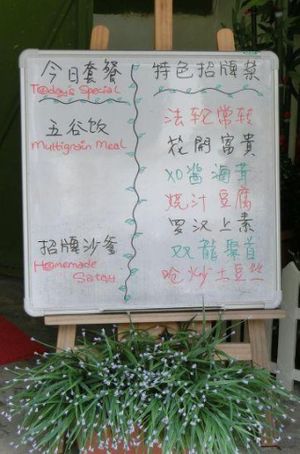 今日套餐
Today's Special
五谷饭
Multigrain Meal
招牌沙爹
Homemade
Satay
特色招牌菜
法轮常转
花開富貴
XO醬海茸
烧汁豆腐
罗汉上素
双龍聚首
呛炒土豆丝